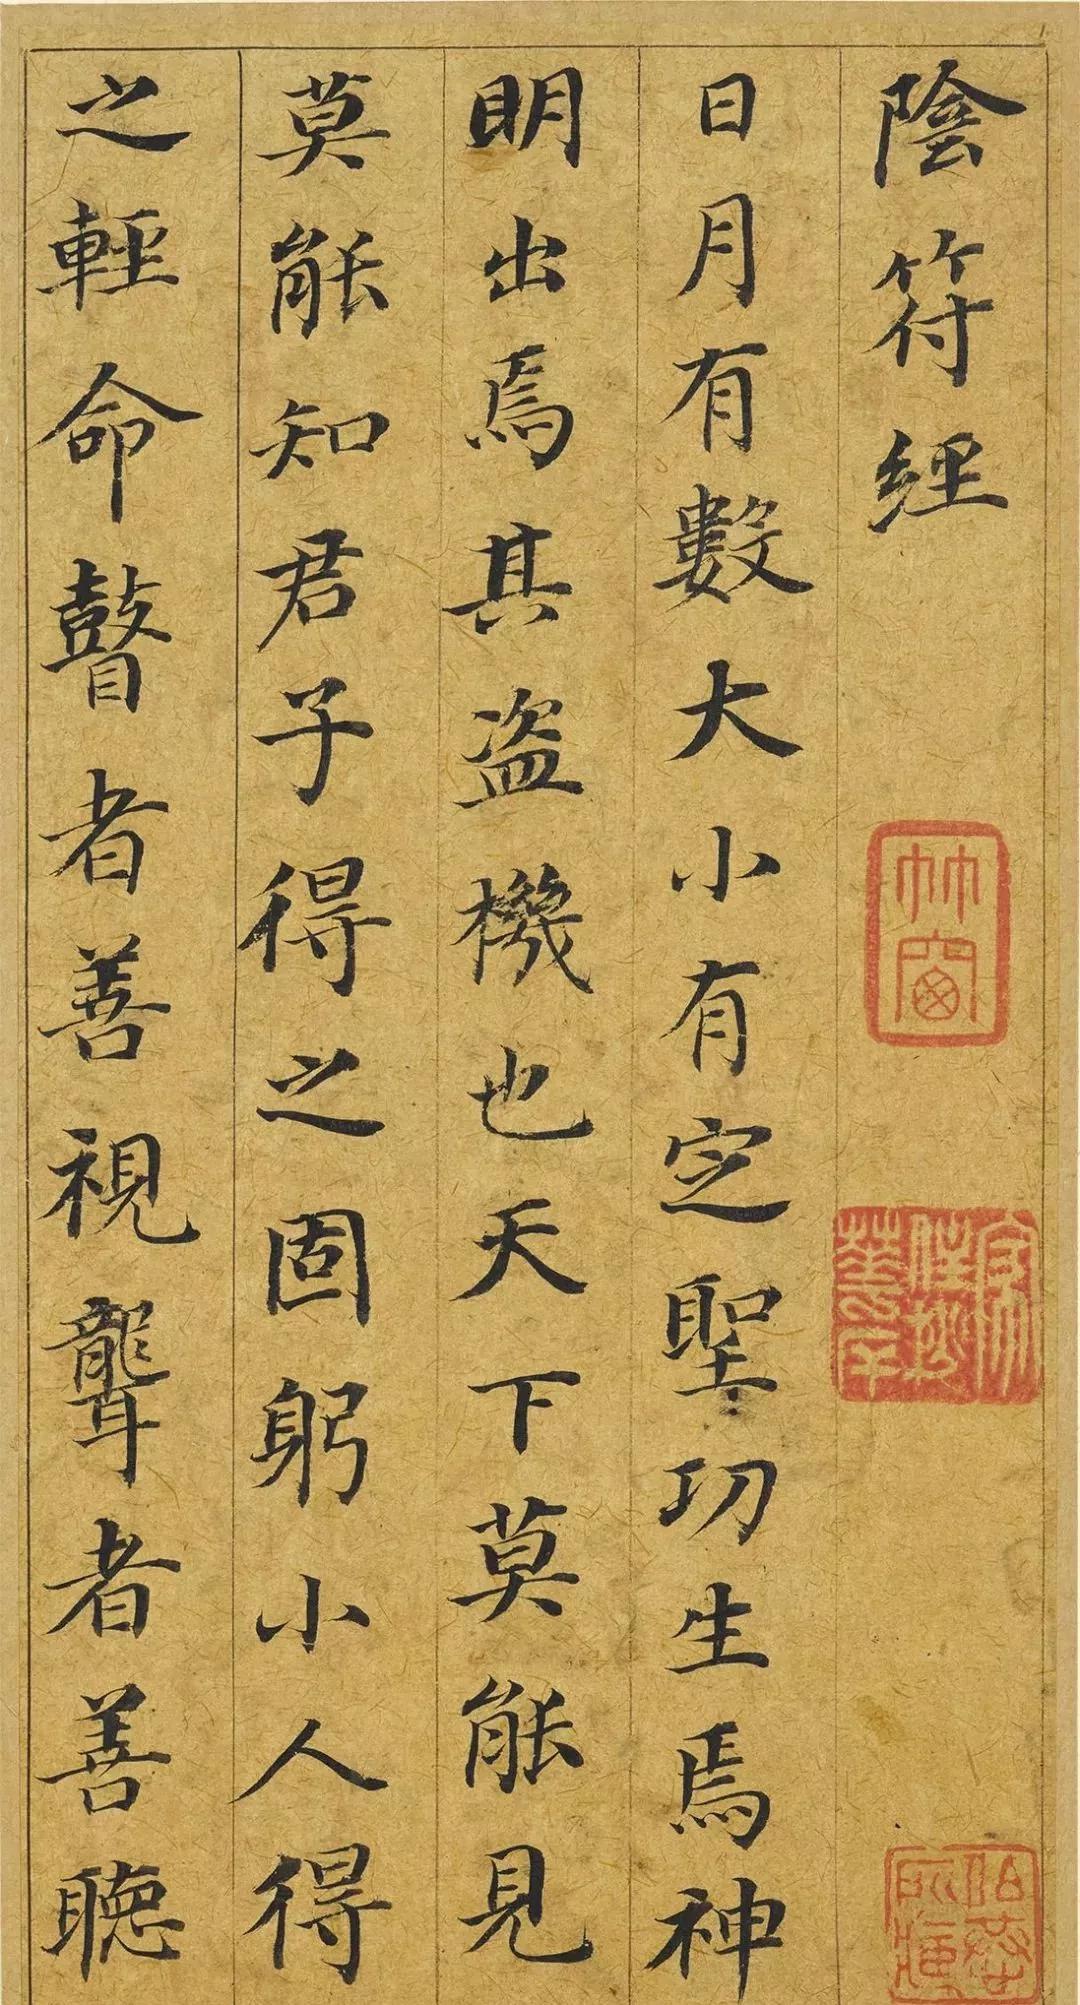 陰符經
日月有數大小有定聖功生焉神
明出焉其盗機也天下莫能見
莫能知君子得之固躬小人得
之輕命瞽者善視聾者善聽
竹窗